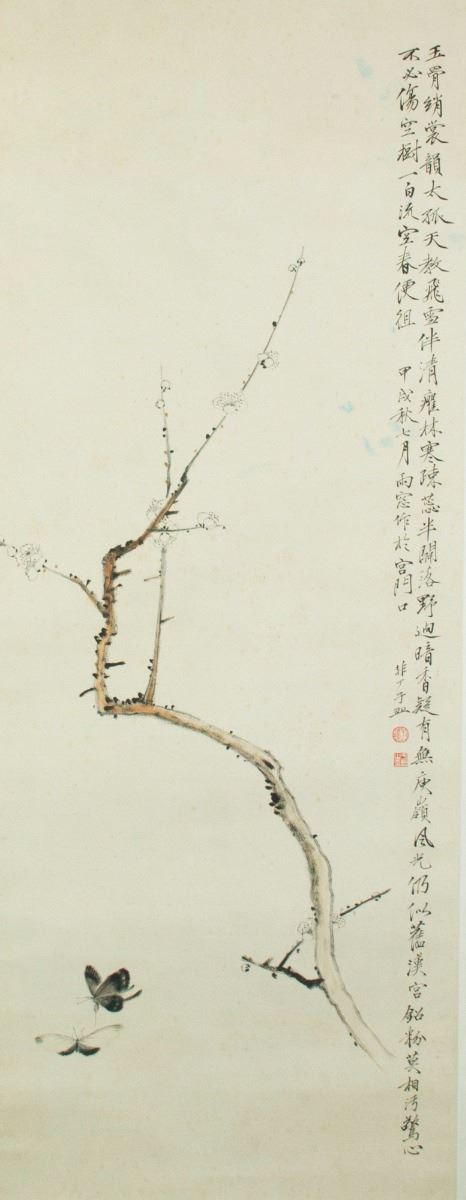 玉骨綃裳韻太孤天教飛雪伴清癯林寒疎蕊半開落野迥暗香疑有無庾嶺風光仍似舊漢宮鉛粉莫相污驚心
不必傷空樹一白流空春便徂 甲戌秋七月雨窓作於宮門口
非丁于照